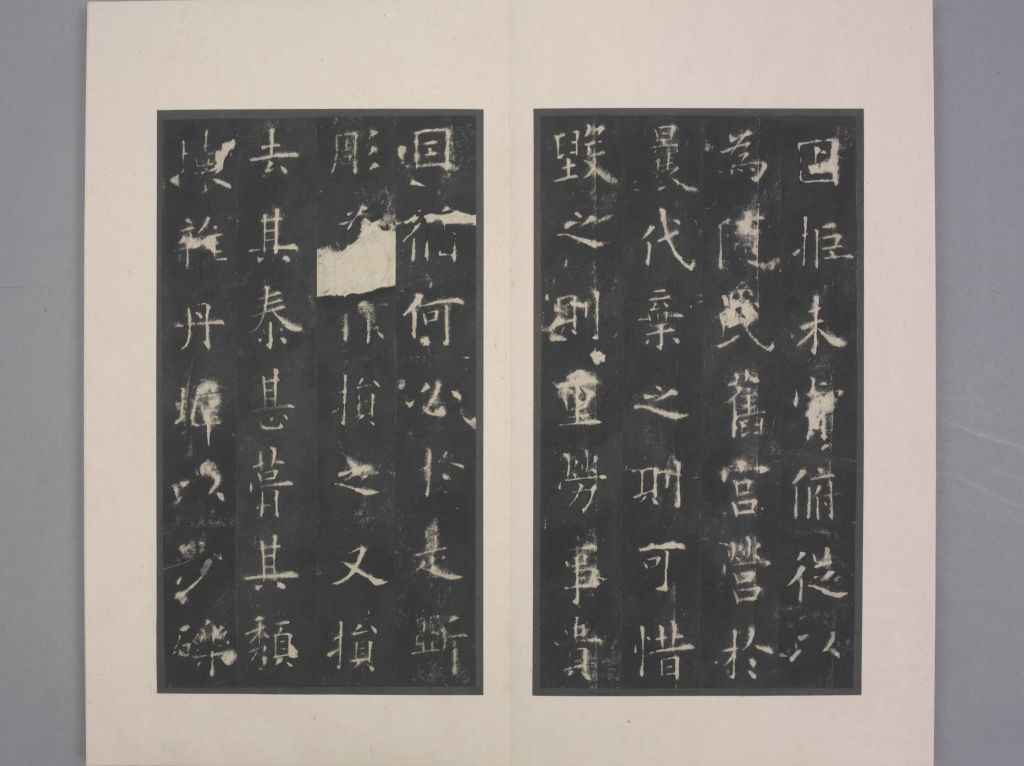 固拒未肯俯從以
為隨氏舊宮營於
曩代棄之則可惜
毀之則重勞事貴
因循何必於是斲
彫為作損之又損
去其泰甚葺其頹
壞雜丹墀以沙礫